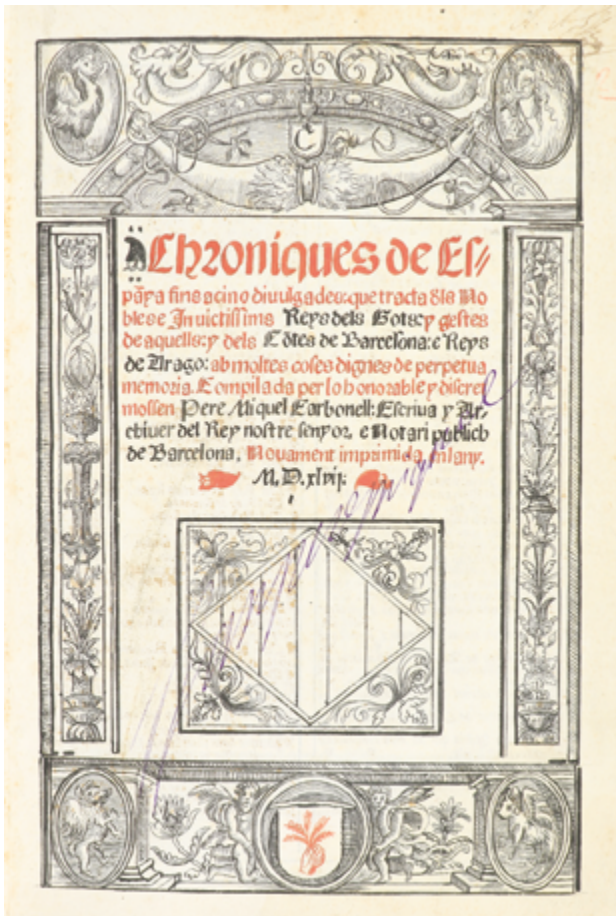 Chroniques de Es⸗
pāya fins aci no diuulgades: que tracta d̄ls No
bles e Inuictissims Reys dels Gots: y gestes
de aquells: y dels Cōtes de Barcelona: e Reys
de Arago: ab moltes coses dignes de perpetua
memoria. Compilada per lo honorable y discret
mossen Pere Miquel Carbonell: Escriua y Ar⸗
chiuer del Rey nostre senyor, e Notari publich
de Barcelona, Nouament imprimida enlany.
M.D.xlvij.